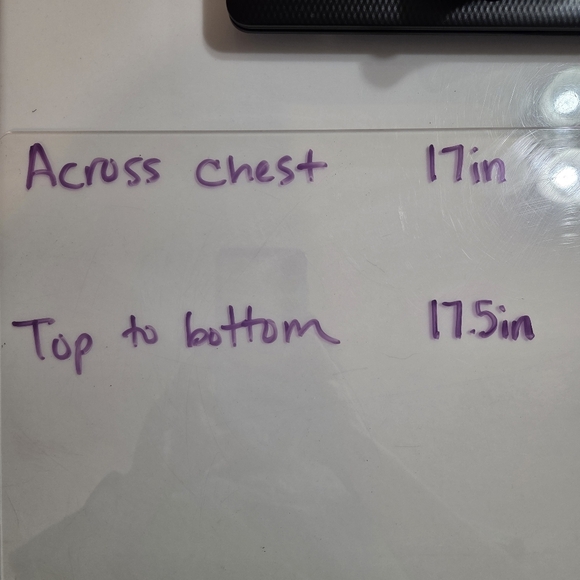 Across chest 17in
Top to bottom 17.5in